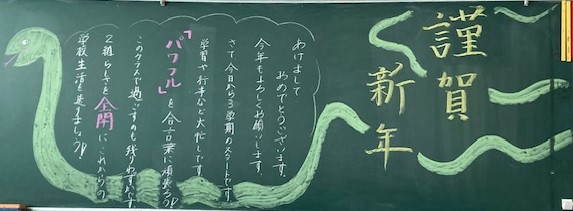 謹賀
新年
あけまして
おめでとうございます。
今年もよろしくお願いします。
さて今日から3学期のスタートです。
学習や行事など大忙しです。
「パワフル」を合言葉に頑張ろう!
このクラスで過ごすのも残りわずかです。
2組らしさを全開に、これからの
学校生活を送りましょう!